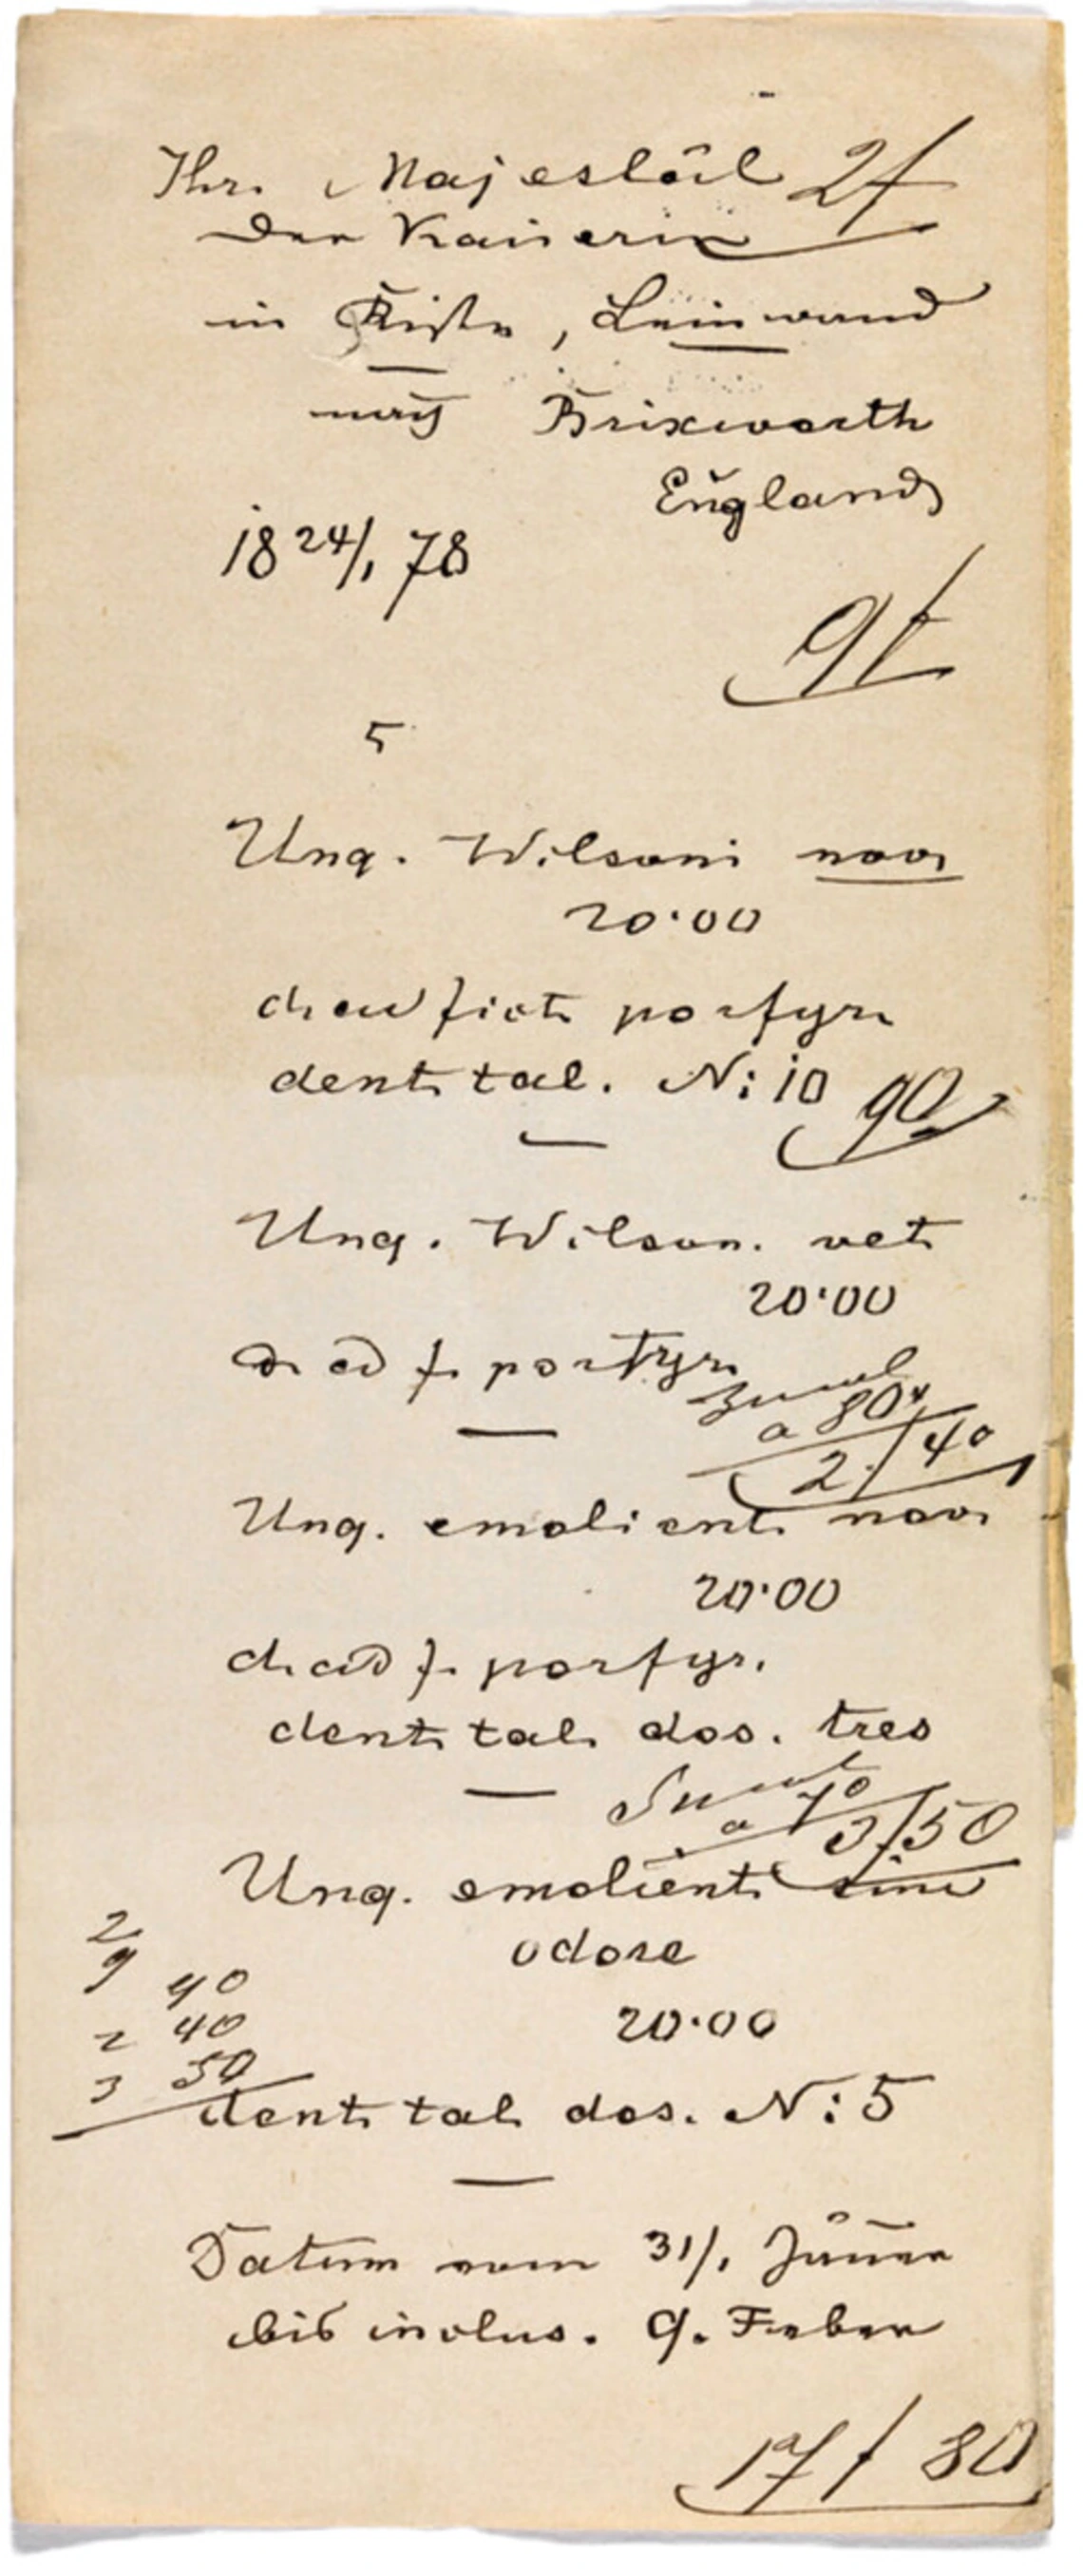 Ihr. Majestät 2f
der Kaiserin
in Kiste, Leinwand
nach Brixworth
England
18 24/1 78
9f
5
Ung. Wilsoni novi
20·00
d. ad fict. porfyr.
dent. tal. N: 10 90
Ung. Wilson. vet.
20·00
d. ad f. porfyr.
3mal
a 80x
2f 40
Ung. emolient. novi
20·00
d. ad f. porfyr.
dent. tal. dos. tres
5mal
a 70
3f 50
Ung. emolient. sine
odore
2
9
90
20·00
2 40
3 50
dent. tal. dos. N: 5
Datum vom 31/1 Jänner
bis inclus. 9. Feber
17f 80